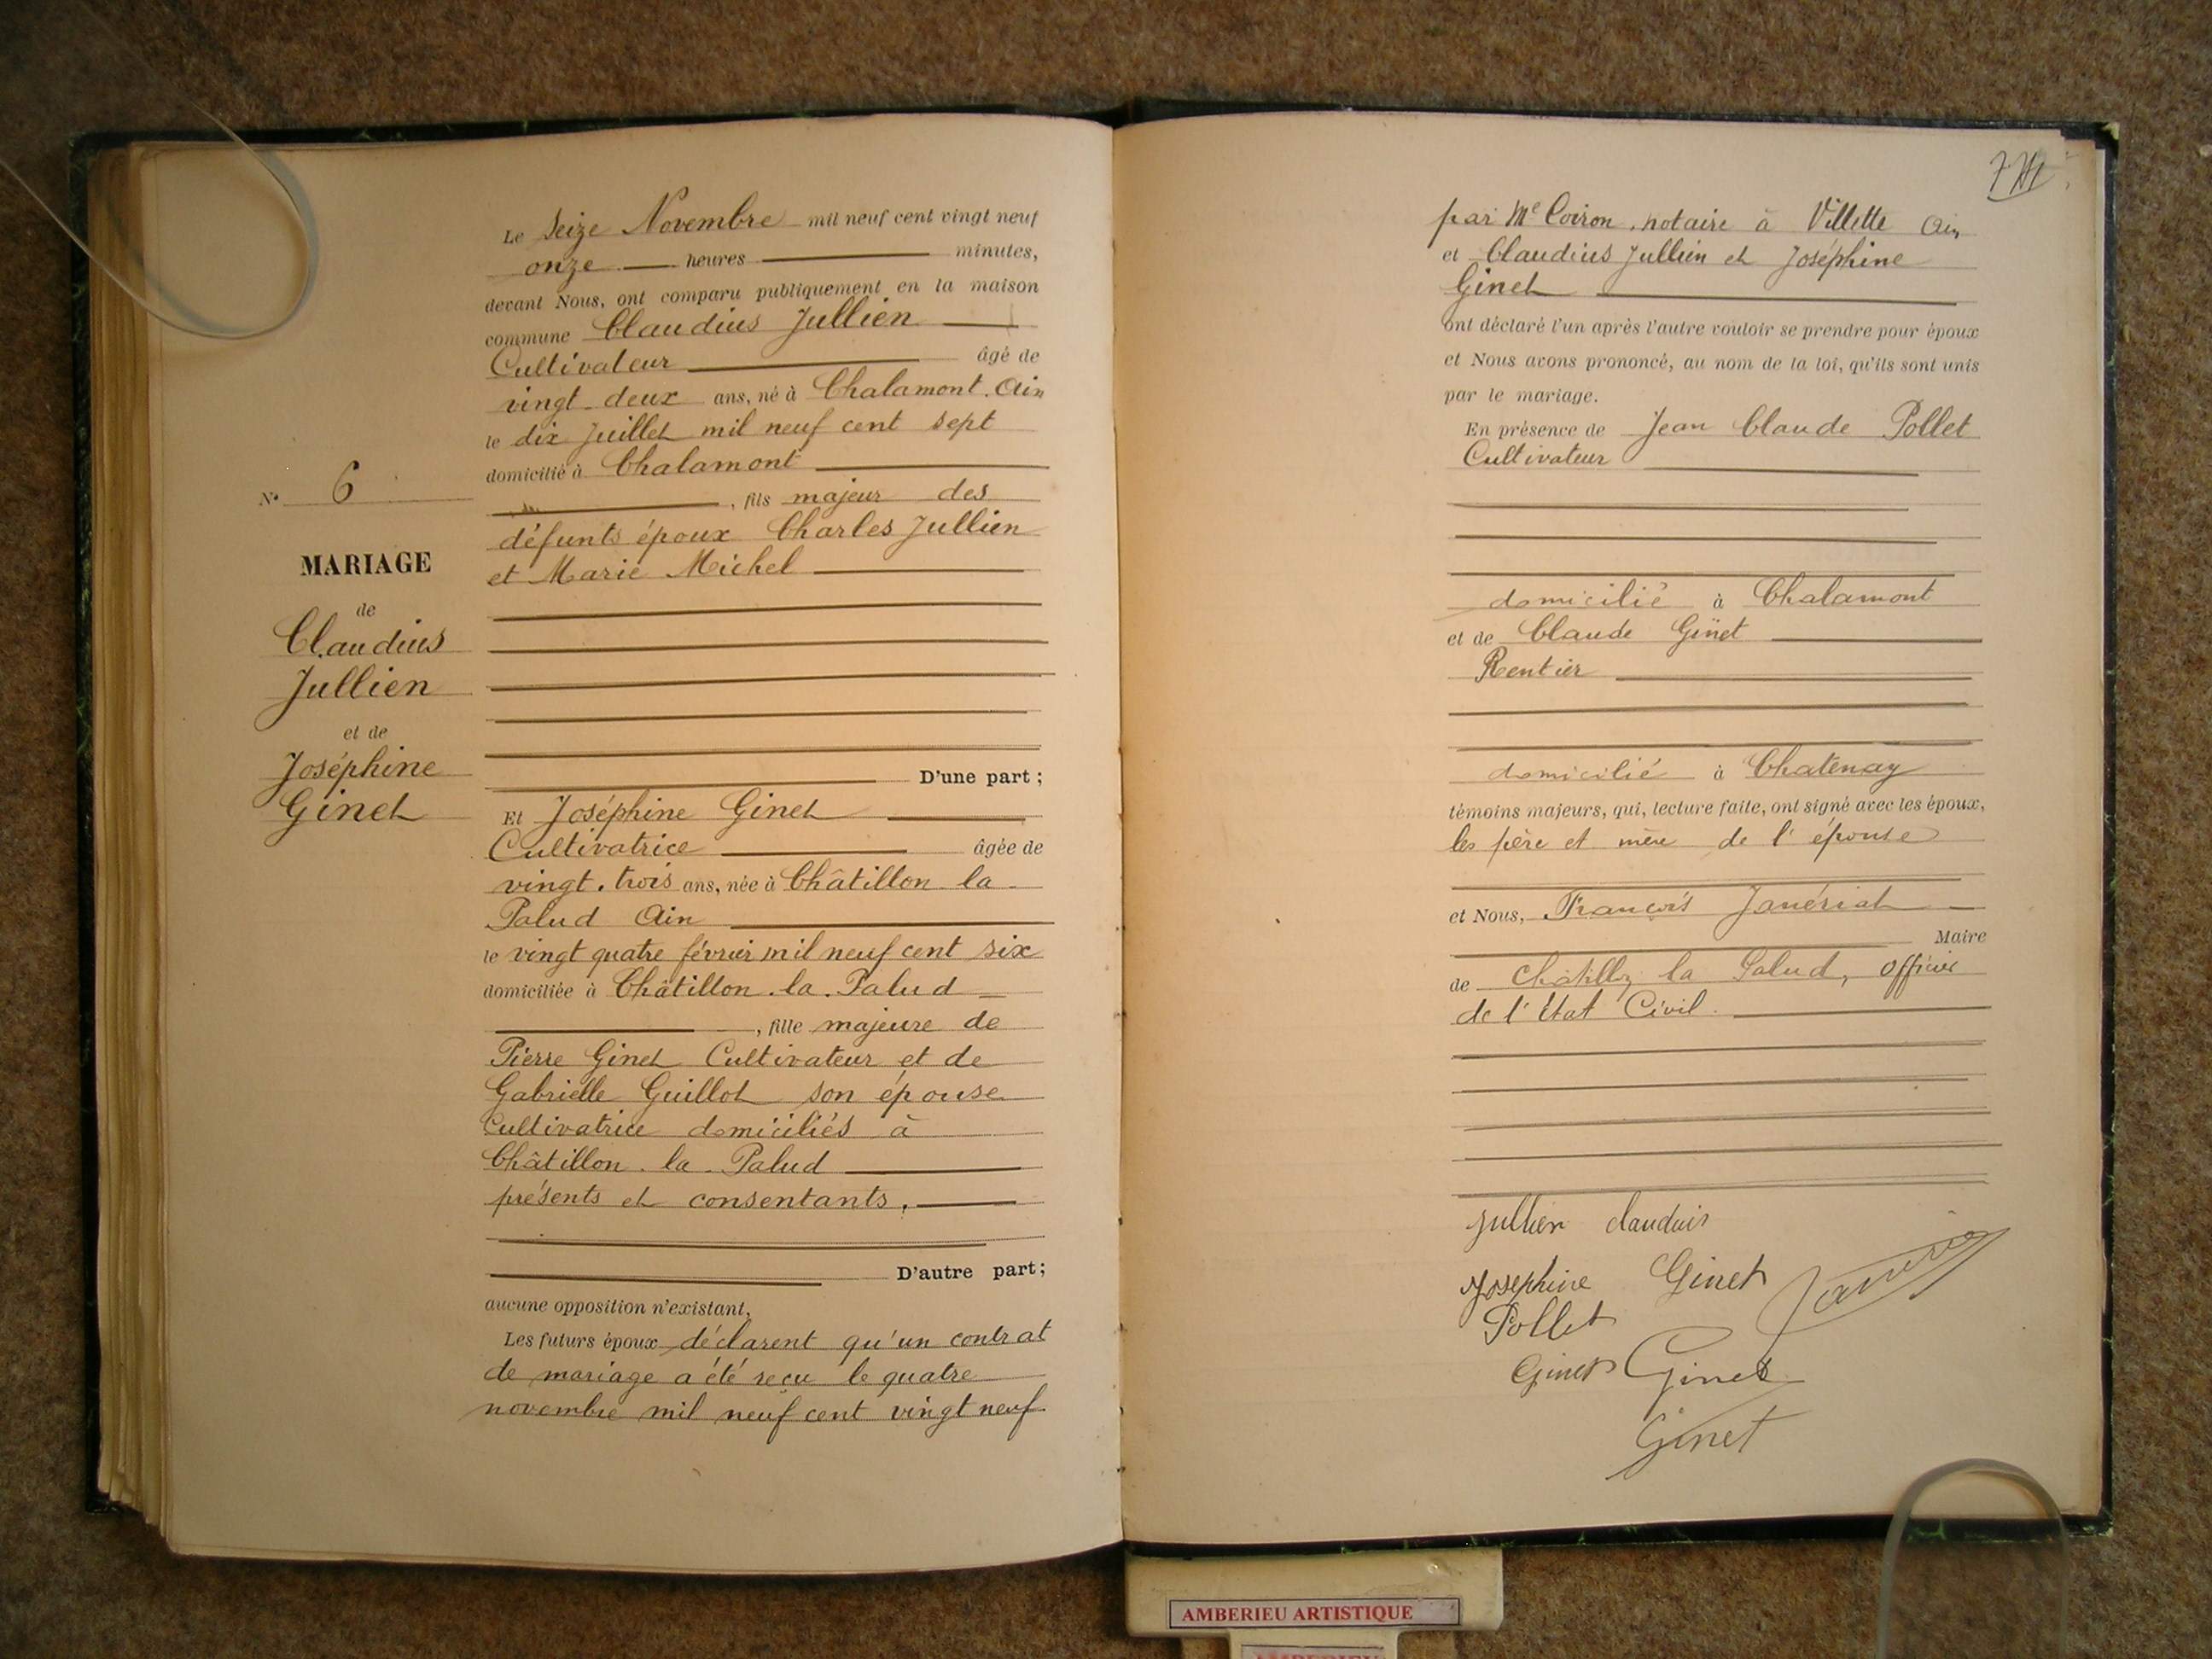 Le seize Novembre mil neuf cent vingt neuf
onze heures minutes,
devant Nous, ont comparu publiquement en la maison
commune Claudius Jullien
Cultivateur âgé de
vingt deux ans, né à Chalamont. Ain
le dix Juillet mil neuf cent sept
domicilié à Chalamont
, fils majeur des
défunts époux Charles Jullien
et Marie Michel
D'une part ;
Et Joséphine Ginet
Cultivatrice âgée de
vingt. trois ans, née à Châtillon la
Palud Ain
le vingt quatre février mil neuf cent six
domiciliée à Châtillon. la. Palud
, fille majeure de
Pierre Ginet Cultivateur et de
Gabrielle Guillot son épouse
Cultivatrice domiciliés à
Châtillon. la. Palud
présents et consentants.
D'autre part ;
aucune opposition n'existant,
Les futurs époux déclarent qu'un contrat
de mariage a été reçu le quatre
novembre mil neuf cent vingt neuf
N° 6
MARIAGE
de
Claudius
Jullien
et de
Joséphine
Ginet
par Me Coiron, notaire à Villette Ain
et Claudius Jullien et Joséphine
Ginet
ont déclaré l'un après l'autre vouloir se prendre pour époux
et Nous avons prononcé, au nom de la loi, qu'ils sont unis
par le mariage.
En présence de Jean Claude Pollet
Cultivateur
domicilié à Chalamont
et de Claude Ginet
Rentier
domicilié à Chatenay
témoins majeurs, qui, lecture faite, ont signé avec les époux,
les père et mère de l'épouse
et Nous, François Janériat
Maire
de Chatillon la Palud, officier
de l'Etat Civil.
Jullien Claudius
Josephine Ginet
Pollet
Ginet Ginet
Ginet
AMBERIEU ARTISTIQUE